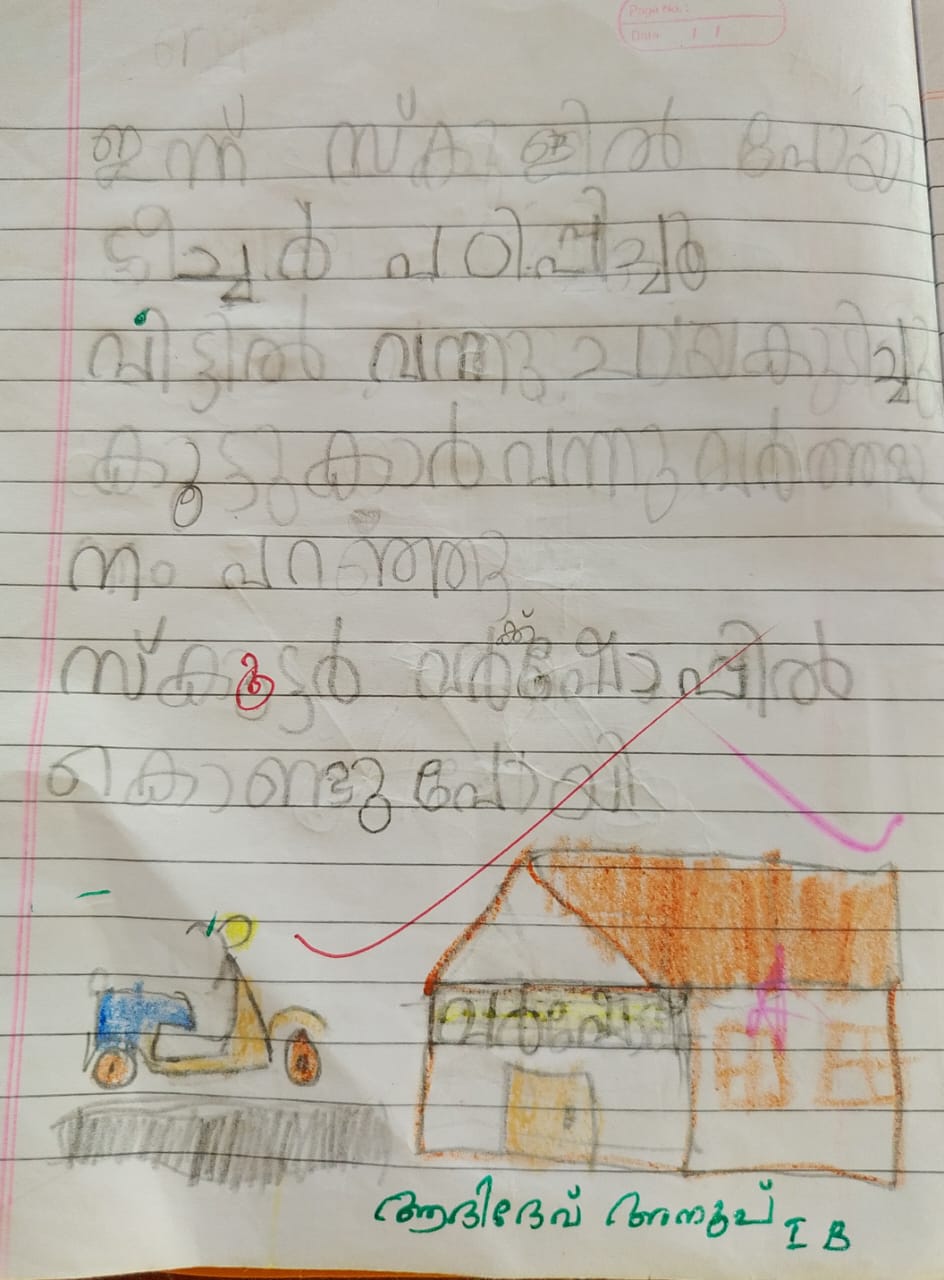 Page No.:
Date
ഇന്ന് സ്കൂളിൽ പോയി
ടീച്ചർ പഠിപ്പിച്ചു
വീട്ടിൽ വന്നു ചായകുടിച്ചു
കൂട്ടുകാർവന്നു വർത്തമാ
നം പറഞ്ഞു
സ്കൂട്ടർ വർക്ക്ഷോപ്പിൽ
കൊണ്ടുപോയി
ആദിദേവ് അനൂപ് I B